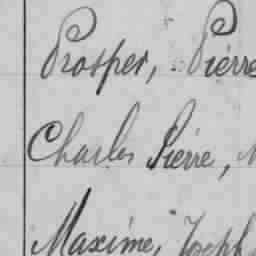 Prosper, Pierre
Charles Pierre,
Maxime, Joseph